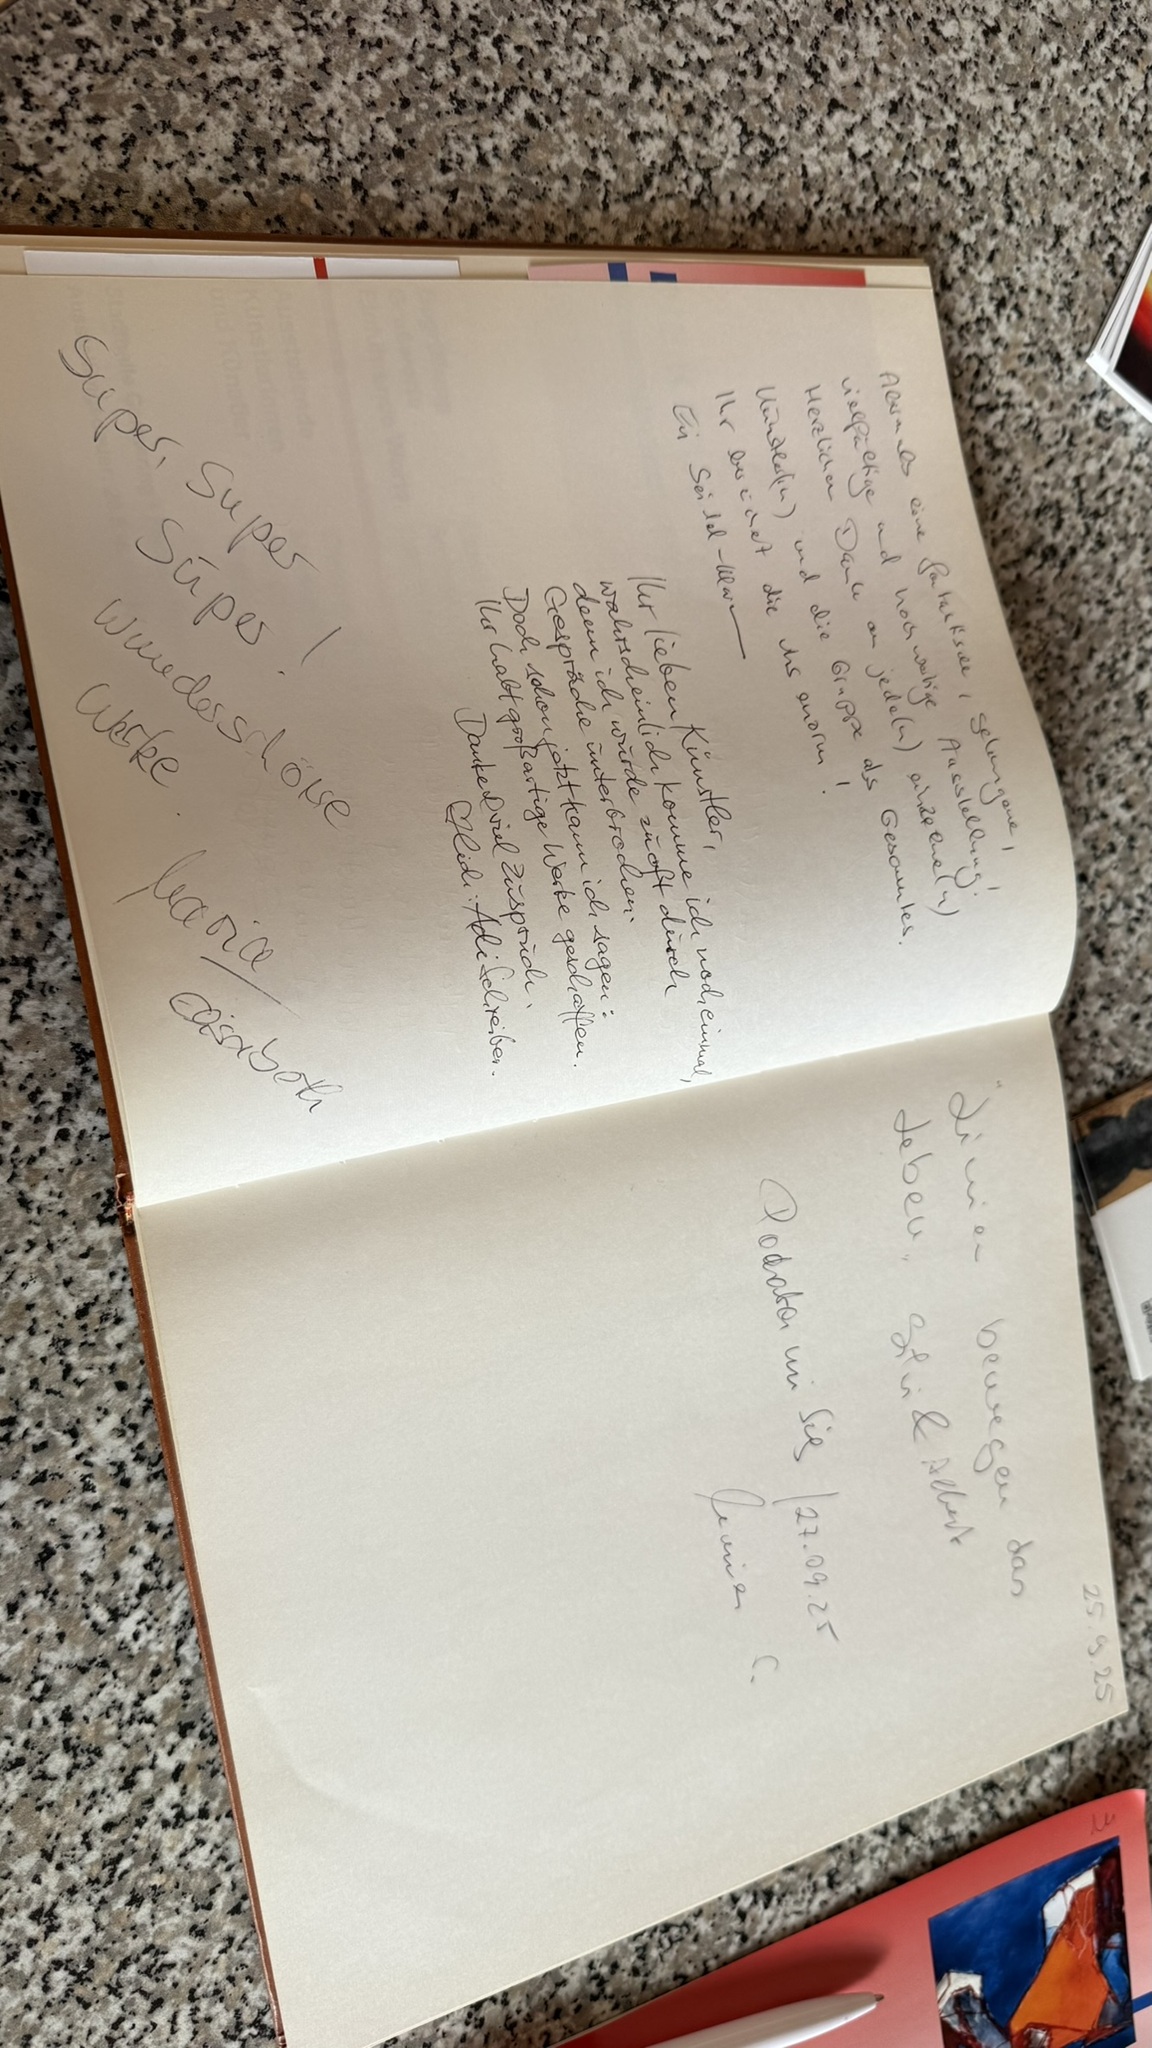 Abermals eine fantastische, gelungene,
vielfältige und hochwertige Ausstellung!
Herzlichen Dank an jede(n) einzelne(n)
Künstler(in) und die Gruppe als Gesamtes.
Ihr bereichert die uns enorm!
Ihr lieben Künstler,
wahrscheinlich komme ich noch einmal,
denn ich wurde zu oft durch
Gespräche unterbrochen.
Doch schon jetzt kann ich sagen:
Ihr habt großartige Werke geschaffen.
Danke viel Zuspruch.
Adi Schreiber.
Super, super
Super!
Wunderschöne
Werke.
Maria
25.9.25
"Linien bewegen das
Leben." &
27.09.25